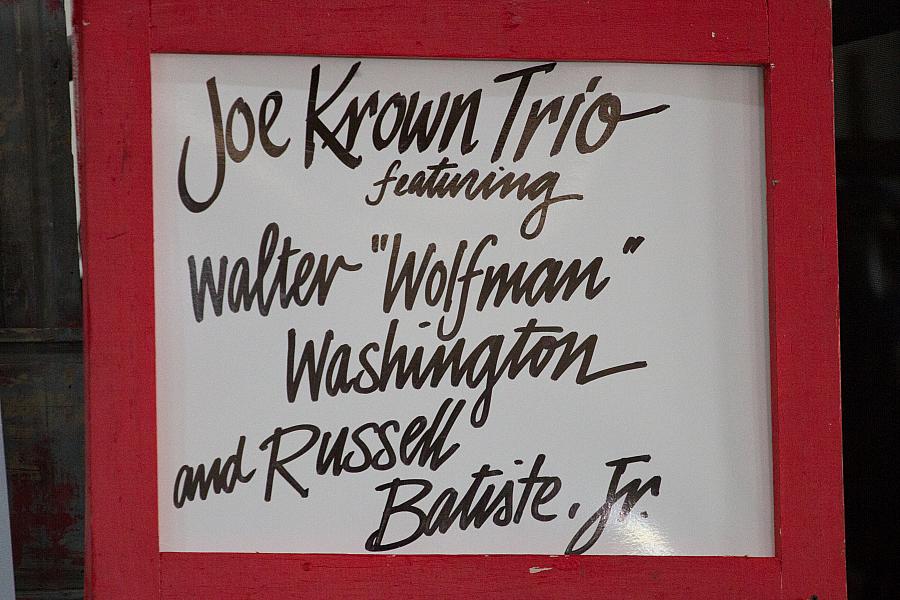 Joe Krown Trio
featuring
Walter "Wolfman"
Washington
and Russell
Batiste. Jr.